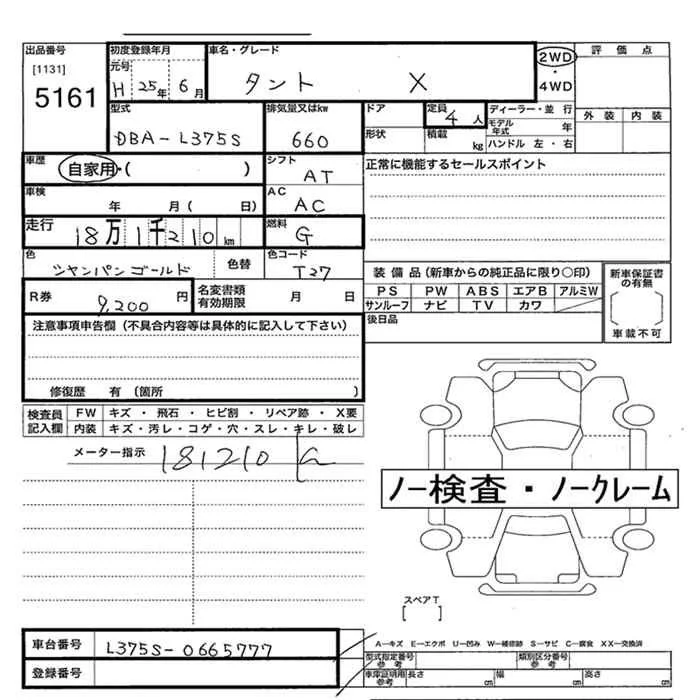 出品番号 初度登録年月 車名・グレード 2WD ・ 4WD 評価点
[1131] 元号 H 25年 6月 タント X
5161
外装 内装
型式 排気量又はkw ドア 定員 4人 ディーラー・並行
DBA-L375S 660 形状 積載 kg モデル年式 年
ハンドル 左・右
車歴 自家用・( ) シフト AT 正常に機能するセールスポイント
車検 年 月( 日) AC AC
走行 18万1千210km 燃料 G
色 シャンパンゴールド 色替 色コード T27
装備品(新車からの純正品に限り○印) 新車保証書の有無
R券 9,200円 名変書類有効期限 月 日
PS PW ABS エアB アルミW
サンルーフ ナビ TV カワ
後日品 車載不可
注意事項申告欄(不具合内容等は具体的に記入して下さい)
修復歴 有(箇所 )
検査員記入欄 FW キズ・飛石・ヒビ割・リペア跡・X要
内装 キズ・汚レ・コゲ・穴・スレ・キレ・破レ
メーター指示 181210 k
ノー検査・ノークレーム
スペアT
[ ]
車台番号 L375S-0665777
登録番号
A―キズ E―エクボ U―凹み W―補修跡 S―サビ C―腐食 XX―交換済
型式指定番号 参考 類別区分番号 参考
車庫証明用 参考 長さ cm 幅 cm 高さ cm